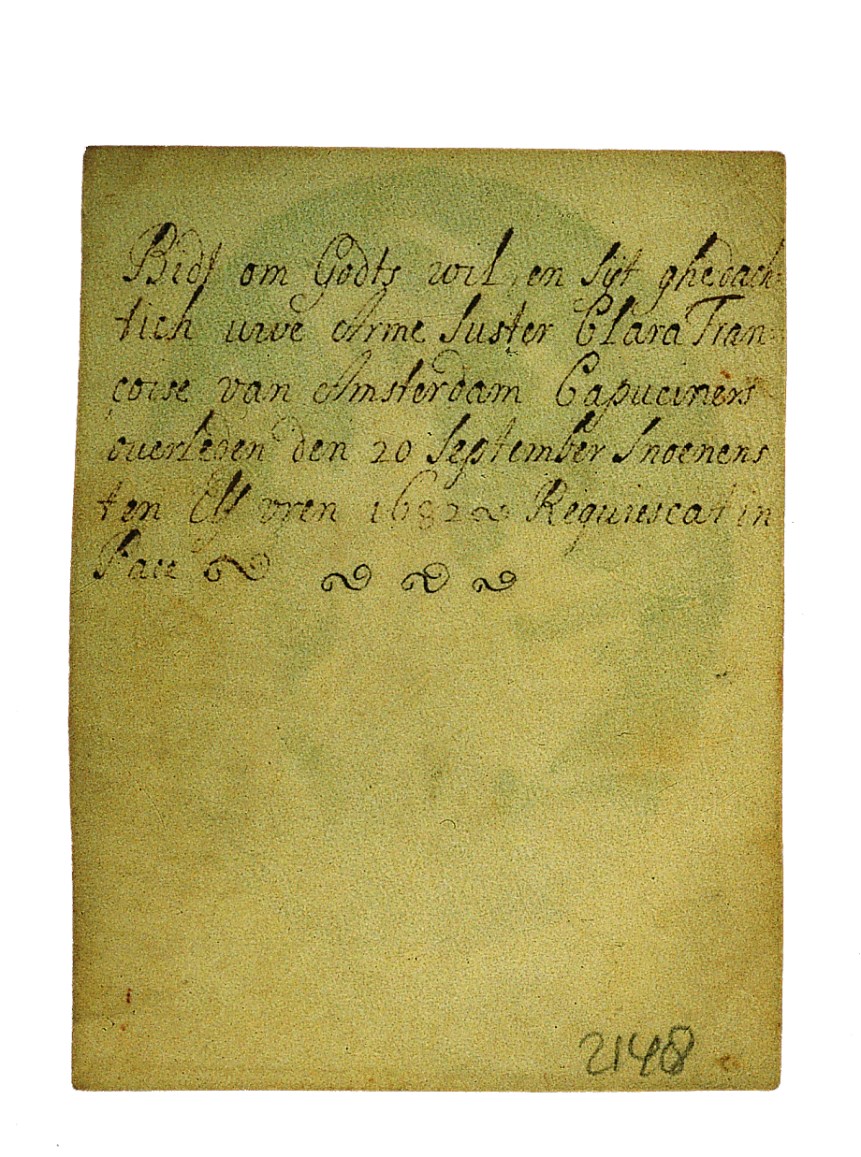 Bidt om Godts wil, en sijt ghedach
tich uwe Arme Suster Clara Fran
coise van Amsterdam Capuciners
overleden den 20 September Snoenens
ten Elf vren 1682 Requiescat in
Pace
2148